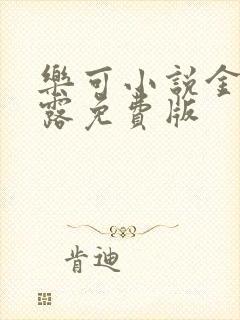 樂可小說金
露免費版
肯迪